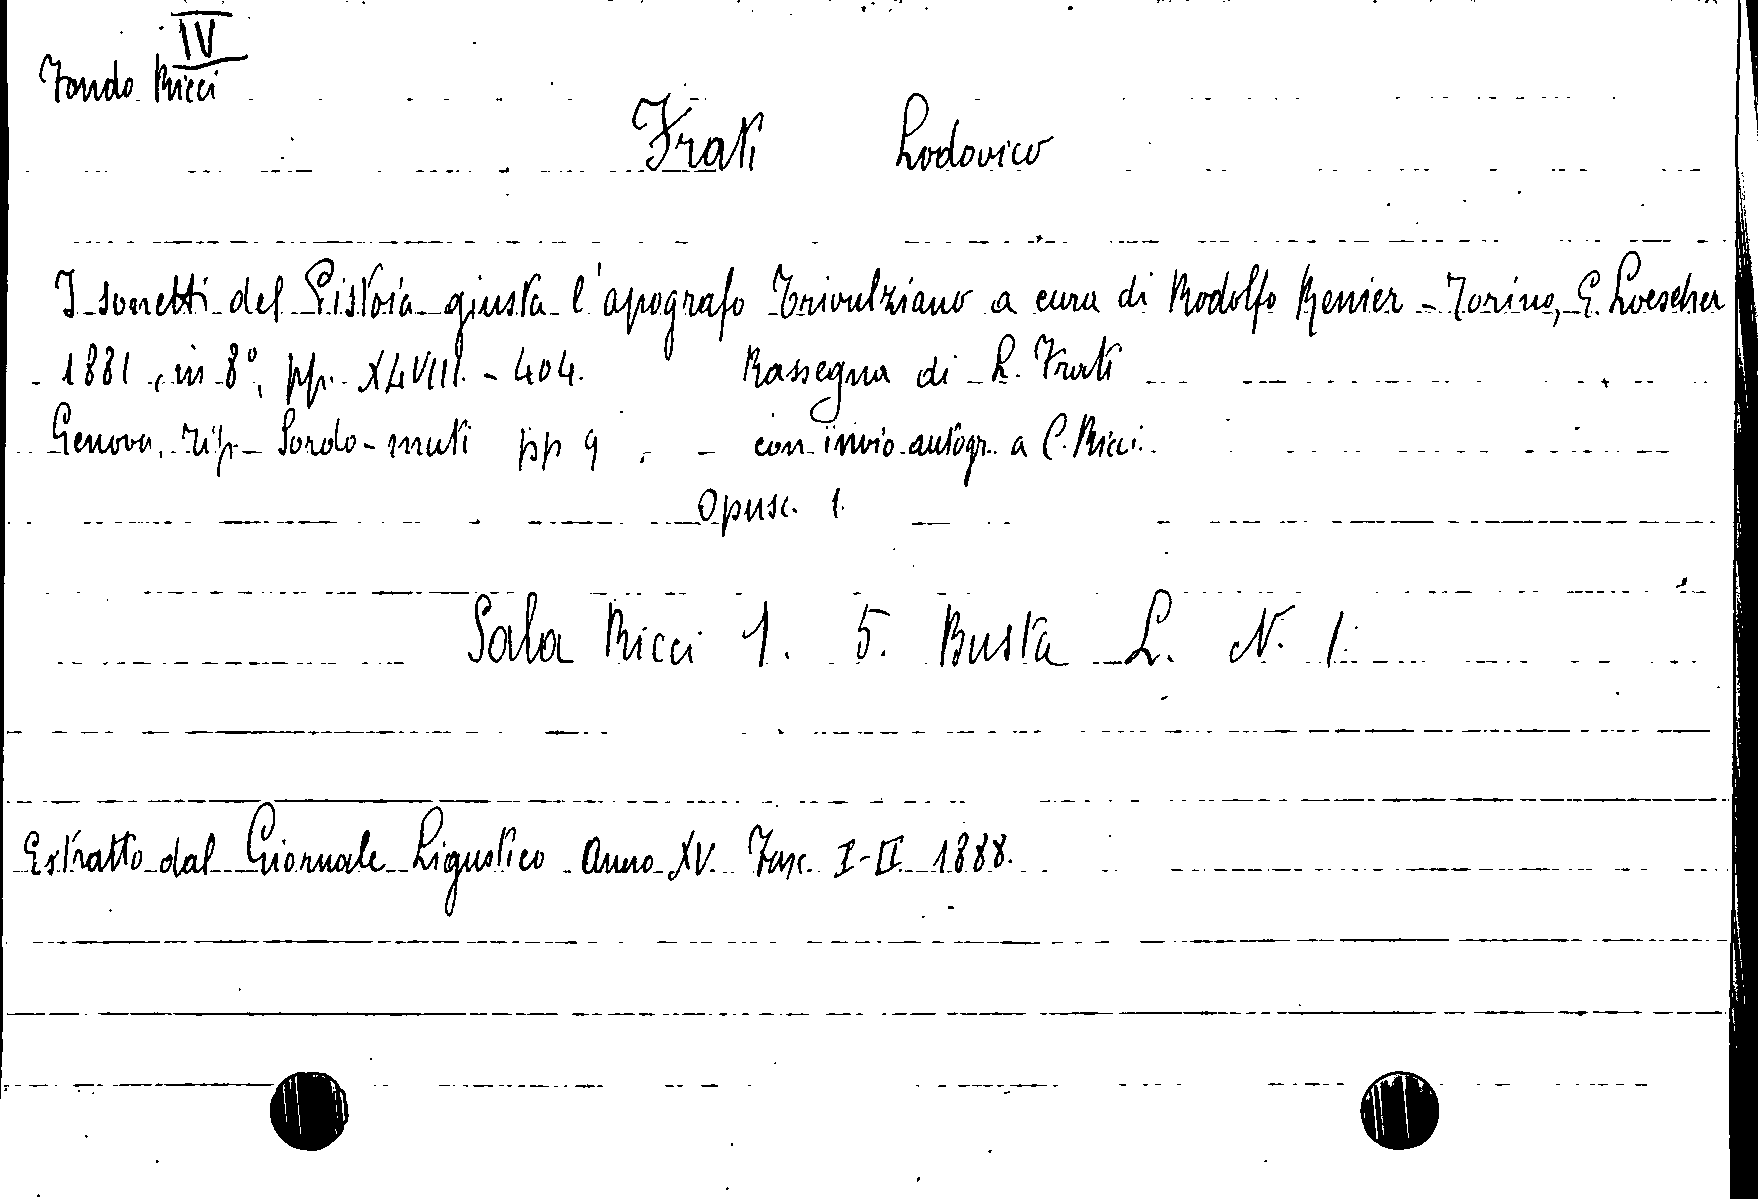 IV
Fondo Ricci
Frati Lodovico
I sonetti del Pistoia giusta l'apografo Trivulziano a cura di Rodolfo Renier - Torino, E. Loescher
1881, in 8°, pp. XLVIII - 404. Rassegna di L. Frati
Genova, Tip. Sordo-muti pp 9 . - con invio autogr. a C. Ricci.
Opusc. 1.
Sala Ricci 1. 5. Busta L. N. 1.
Estratto dal Giornale Ligustico Anno XV. Fasc. I-II 1888.